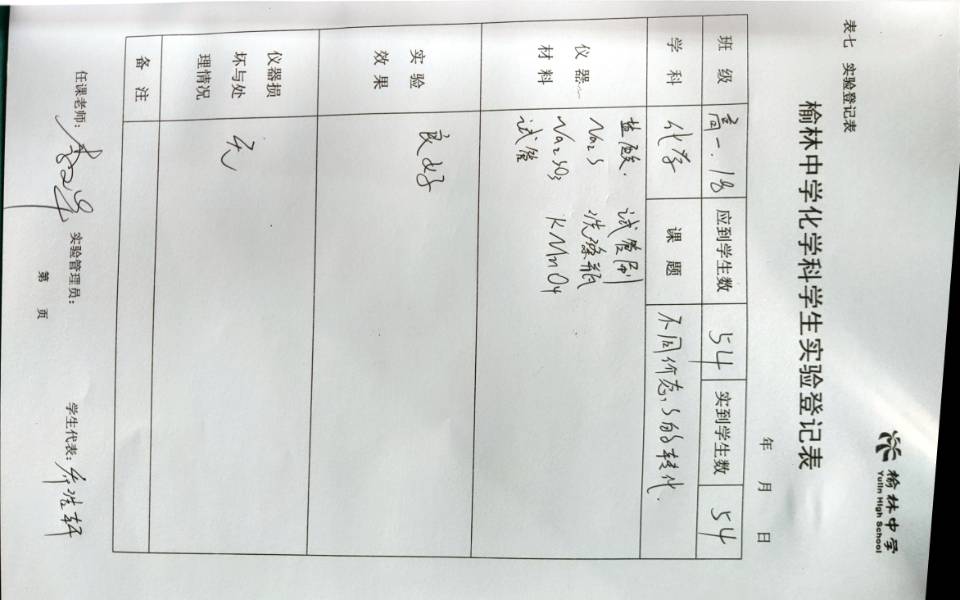 榆林中学
Yulin High School
表七 实验登记表
榆林中学化学科学生实验登记表
年 月 日
班级 高一.18 应到学生数 54 实到学生数 54
学科 化学 课题 不同价态S的转化.
仪器
材料
盐酸. 试管刷
Na₂S 洗涤瓶
Na₂SO₃ KMnO₄
试管
实验
效果
良好
仪器损
坏与处
理情况
无
备注
任课老师: 实验管理员: 学生代表:
第 页